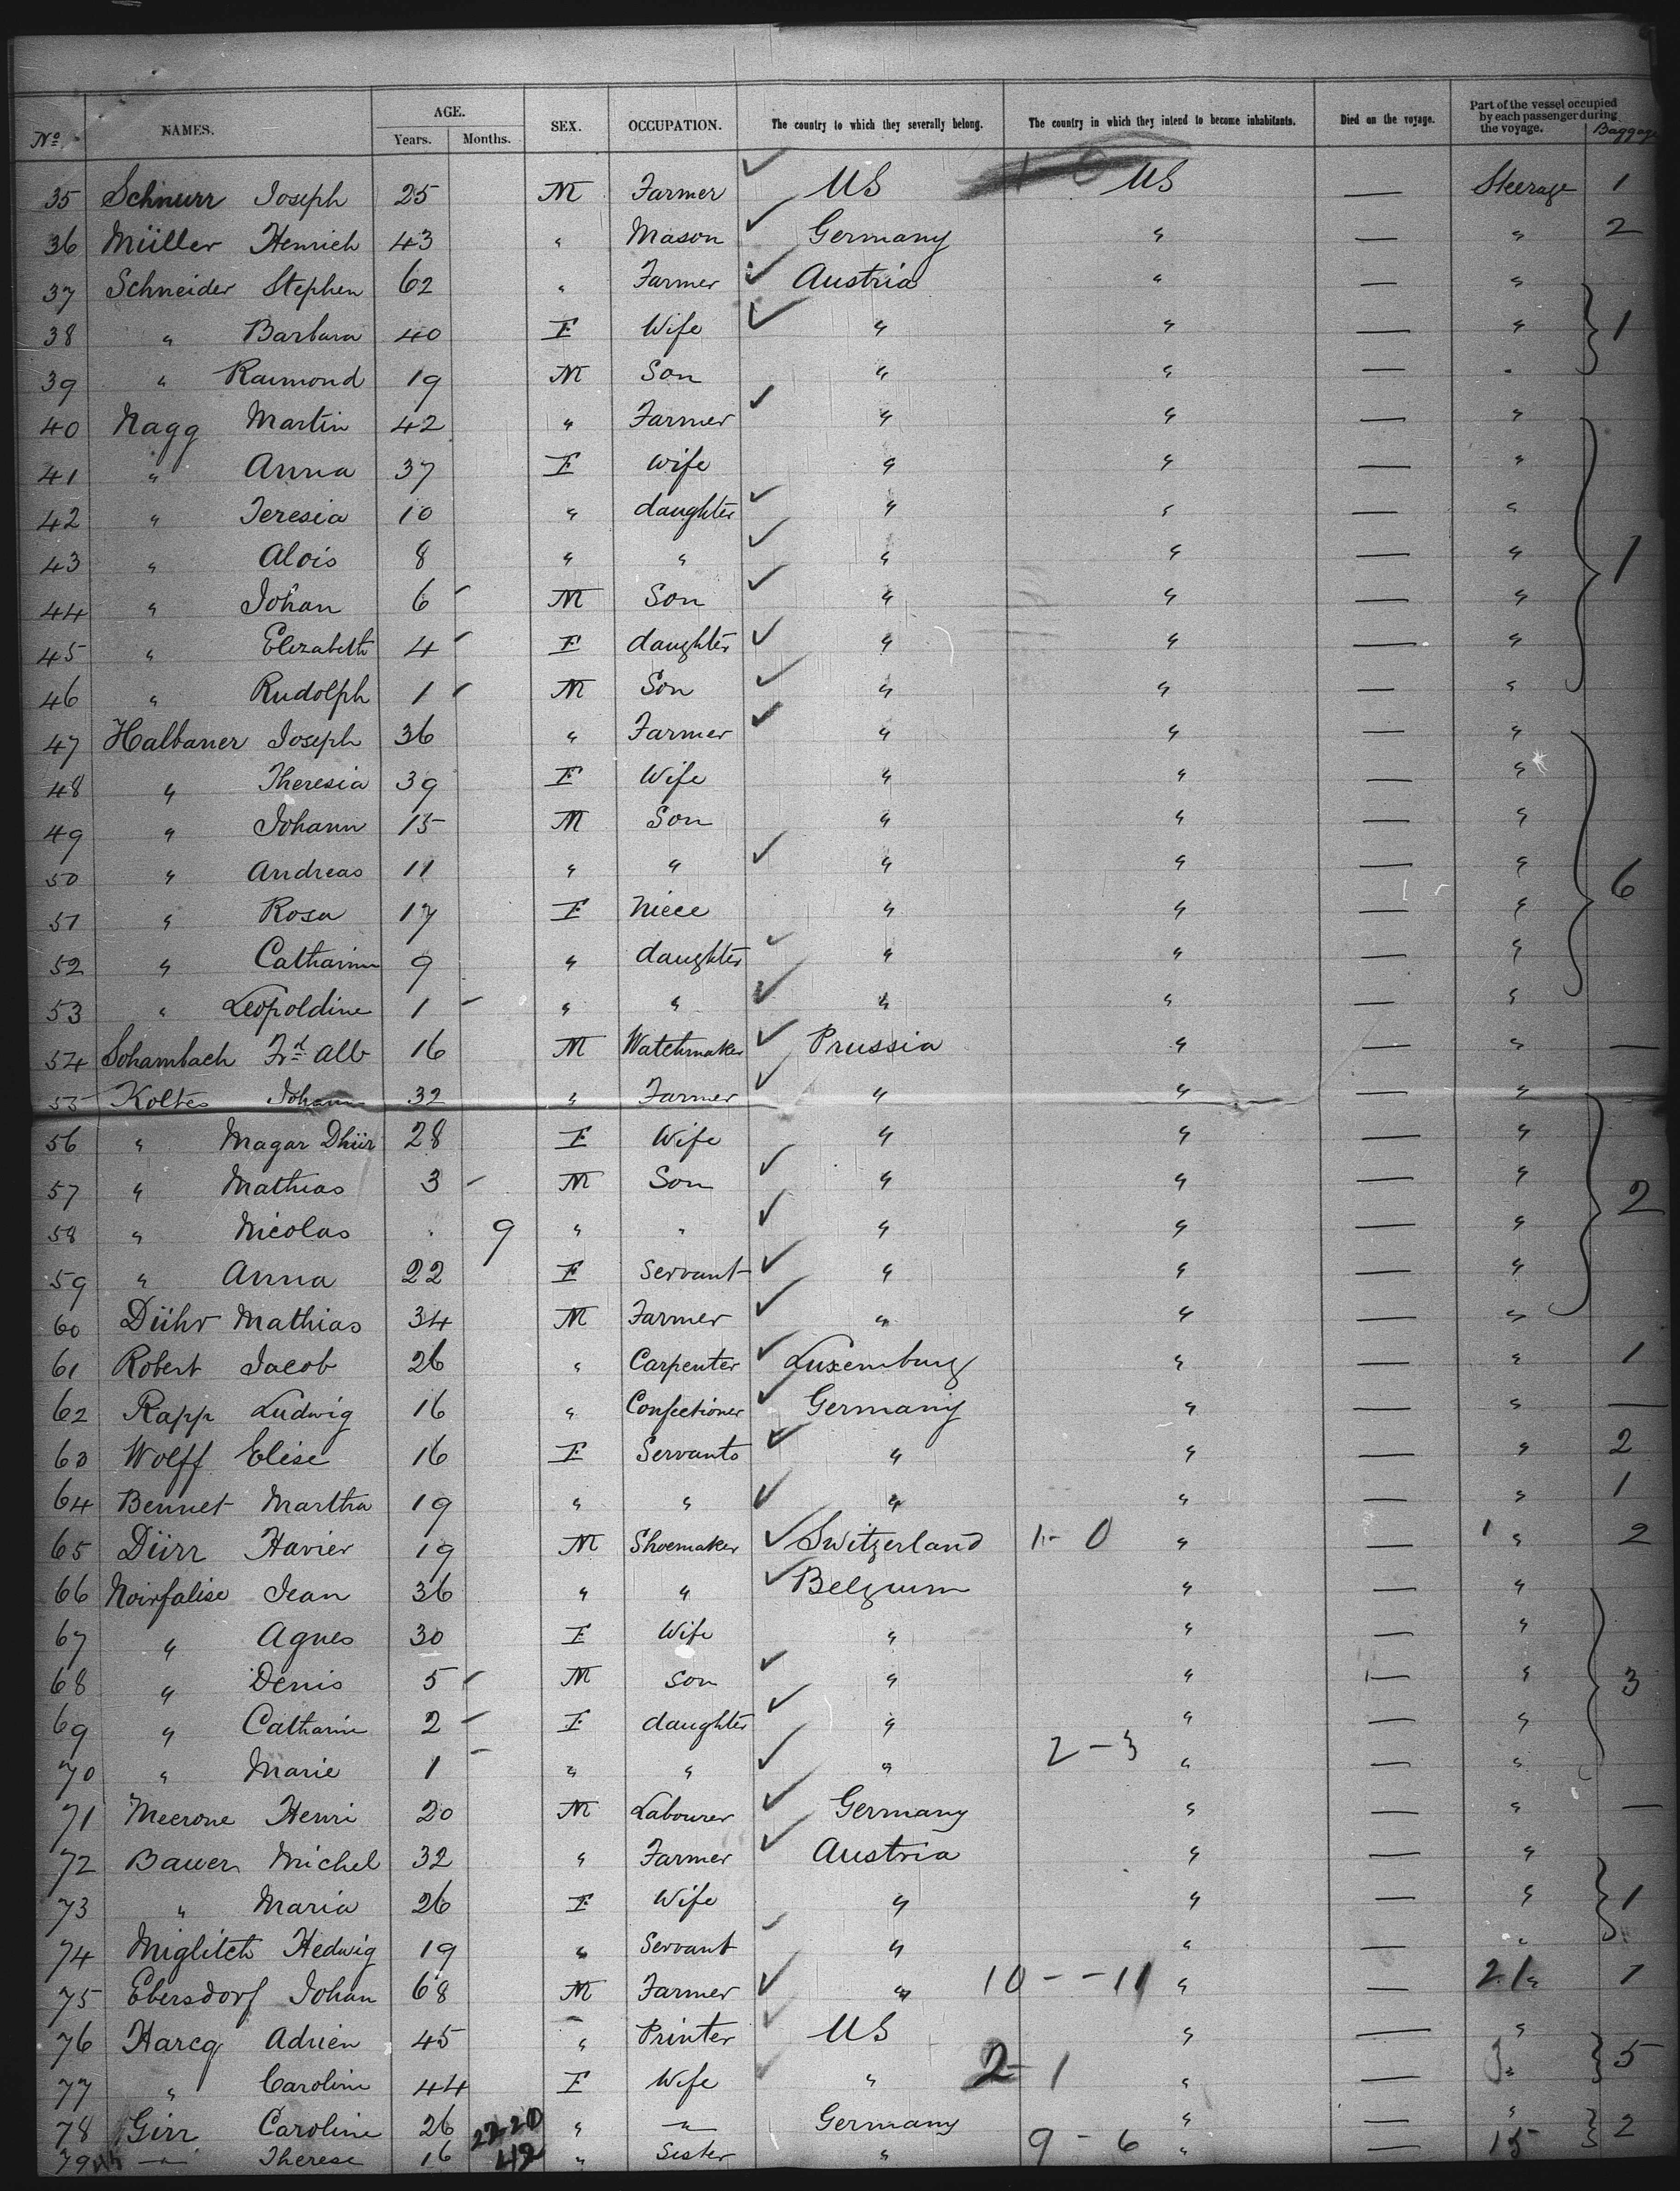 Nº NAMES. AGE. Years. Months. SEX. OCCUPATION. The country to which they severally belong. The country in which they intend to become inhabitants. Died on the voyage. Part of the vessel occupied by each passenger during the voyage. Baggage
35 Schnurr Joseph 25 M Farmer ✓ US US — Steerage 1
36 Müller Henrich 43 " Mason ✓ Germany " — " 2
37 Schneider Stephen 62 " Farmer ✓ Austria " — "
38 " Barbara 40 F Wife ✓ " " — " 1
39 " Raimond 19 M Son " " — "
40 Nagg Martin 42 " Farmer ✓ " " — "
41 " Anna 37 F Wife " " — "
42 " Teresia 10 " daughter ✓ " " — "
43 " Alois 8 " " ✓ " " — " 1
44 " Johan 6 M Son ✓ " " — "
45 " Elizabeth 4 F daughter ✓ " " — "
46 " Rudolph 1 M Son ✓ " " — "
47 Halbaner Joseph 36 " Farmer ✓ " " — "
48 " Theresia 39 F Wife " " — "
49 " Johann 15 M Son " " — "
50 " Andreas 11 " " ✓ " " — " 6
51 " Rosa 17 F Niece " " — "
52 " Catharine 9 " daughter ✓ " " — "
53 " Leopoldine 1 " " ✓ " " — "
54 Schambach Frd Alb 16 M Watchmaker ✓ Prussia " — " —
55 Koltes Johann 32 " Farmer ✓ " " — "
56 " Magar Dhür 28 F Wife " " — "
57 " Mathias 3 M Son ✓ " " — " 2
58 " Nicolas 9 " " ✓ " " — "
59 " Anna 22 F Servant ✓ " " — "
60 Dühr Mathias 34 M Farmer ✓ " " — "
61 Robert Jacob 26 " Carpenter ✓ Luxemburg " — " 1
62 Rapp Ludwig 16 " Confectioner ✓ Germany " — " —
63 Wolff Elise 16 F Servants ✓ " " — " 2
64 Bennet Martha 19 " " ✓ " " — " 1
65 Dürr Xavier 19 M Shoemaker ✓ Switzerland 1-0 " — " 2
66 Noirfalise Jean 36 " " ✓ Belgium " — "
67 " Agnes 30 F Wife " " — "
68 " Denis 5 M son ✓ " " — " 3
69 " Catharin 2 F daughter ✓ " " — "
70 " Marie 1 " " ✓ " 2-3 " — "
71 Meerone Henri 20 M Labourer ✓ Germany " — " —
72 Bauer Michel 32 " Farmer ✓ Austria " — "
73 " Maria 26 F Wife " " — " 1
74 Miglitch Hedwig 19 " Servant ✓ " " — "
75 Ebersdorf Johan 68 M Farmer ✓ " 10--11 " — 21 " 1
76 Harcq Adrien 45 " Printer ✓ US " — "
77 " Caroline 44 F Wife ✓ " 2-1 " — 3 " 5
78 Girr Caroline 26 22-20 " " Germany " — " 2
79 " Therese 16 42 " Sister " 9-6 " — 15